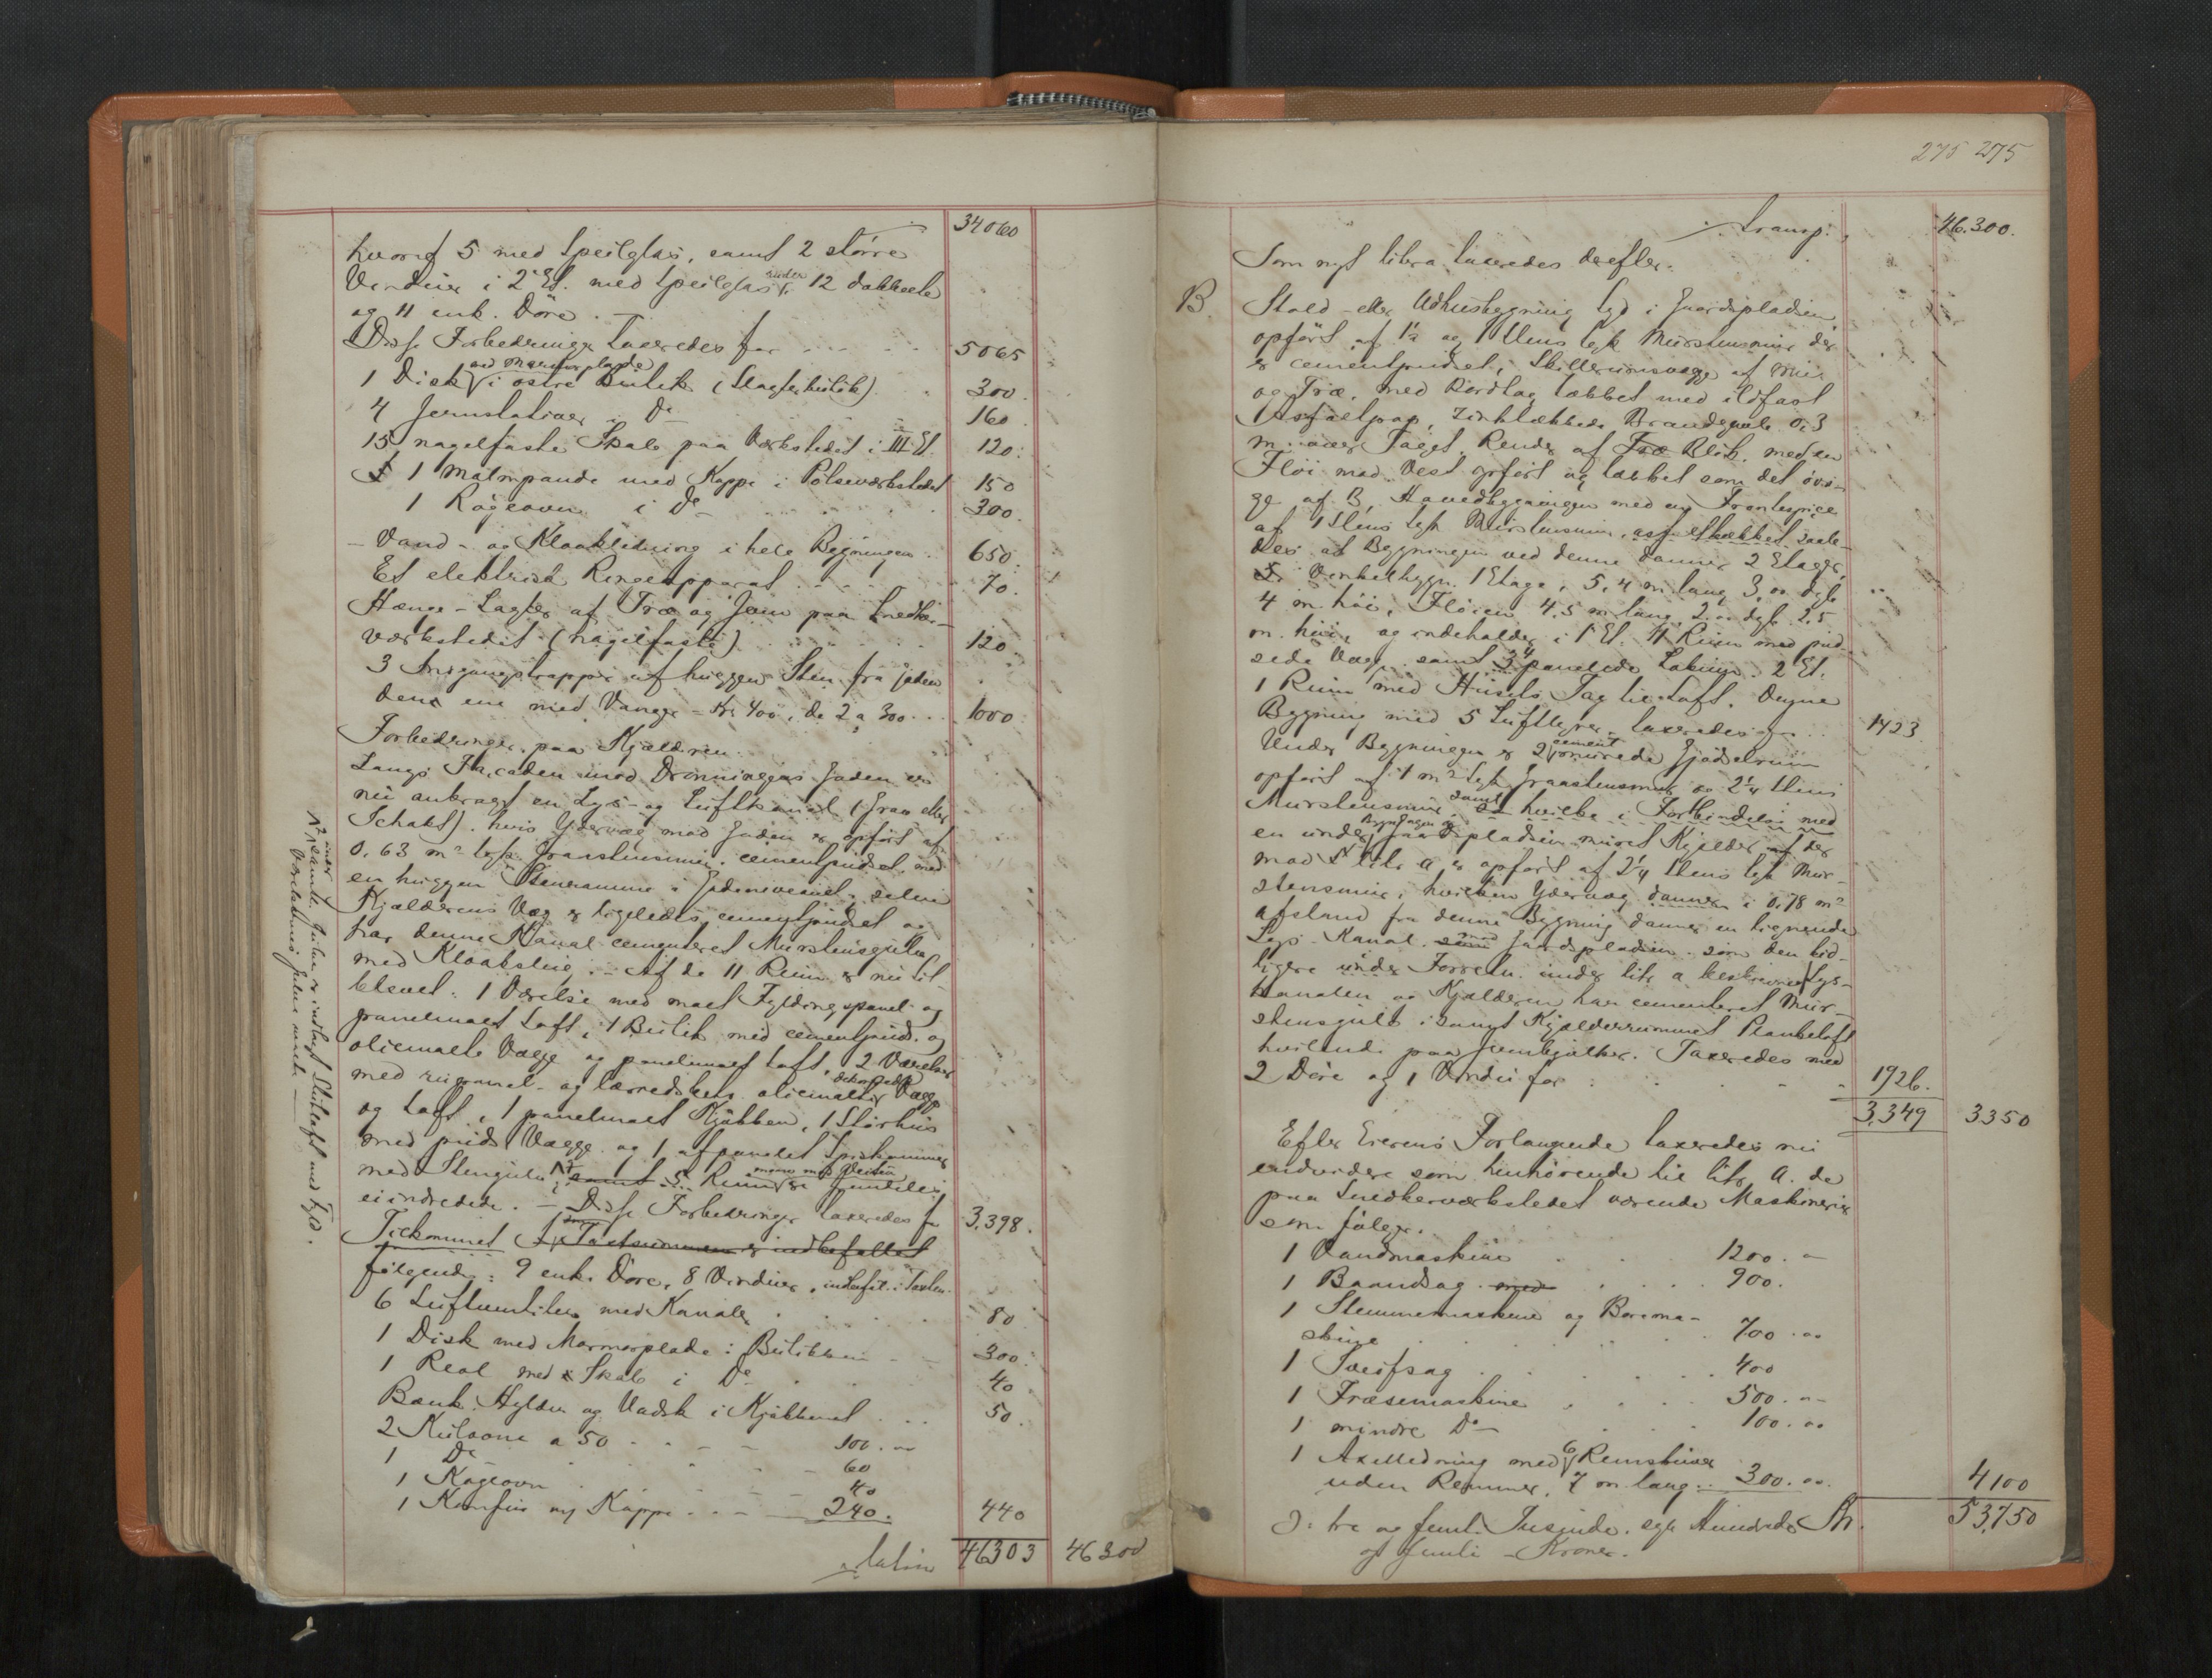 34060
hvoraf 5 med Speilglas, samt 2 större
Vinduer i 2 Et. med Speilglas ruder 12 dobbelte
og 11 enk. Döre. —
Disse Forbedringer taxeredes for 5065
1 Disk med Marmorplade i østre Butik (Slagterbutik) 300.
4 Jernstativer i Do 160.
15 nagelfaste Skabe paa Værkstedet i III Et. 120.
1 Matmpande med Kappe i Pølseværkstedet 150
1 Rögeovn i Do 300.
— Vand- og Kloakledning i hele Bygningen 650.
Et elektrisk Ringeapparat 70.
Hænge-Lagter af Træ og Jern paa Snedker-
værkstedet (nagelfaste) 120.
3 Indgangstrapper af huggen Sten fra gaden
den ene med Vange - Kr 400, de 2 a 300 1000
Forbedringer paa Kjælderen.
Langs Facaden mod Dronningens Gaden er
nu anbragt en Lys- og Luftkanal (Grav eller
Schakt), hvis Ydervæg mod Gaden er opført af
0,63 m tyk Graastensmur, cementpudset, med
en huggen Stenramme i Gadeniveauet, selve
Kjælderens Væg er ligeledes cementpudset og
har denne Kanal cementeret Murstensgulv
med Kloakslug. — Af de 11 Rum er nu til-
blevet: 1 Værelse med malt Fyldingspanel og
panelmalt Loft, 1 Butik med cementpuds. og
oliemalte Vægge og panelmalt Loft, 2 Værelser
med rupanel- og lærredsklæd. oliemalte dekorerede Vægge
og Loft, 1 panelmalt Kjökken, 1 Störhus
med puds. Vægge og 1 afpanelet Spiskammer
med Stengulv, samt 5 Rum
ei indredede. — Disse Forbedringer taxeredes for 3,398.
Tilkommet I Taxtsummen er indbefattet
følgende: 9 enk. Döre, 8 Vinduer, indbefat. i Taxten.
6 Luftventiler med Kanaler 80
1 Disk med Marmorplade i Butikken 300.
1 Reol med Skab i Do 40
Bænk, Hylder og Vadsk i Kjökkenet 50.
2 Kulovne a 50 100.
1 Do 60
1 Kogeovn 40
1 Komfur m/ Kappe 240. 440
Latus 46303 46300
No 1, under samtlige Gulve er indlagt Stubloft med Fyld.
Værelsernes Gulve malte —
275 275
Transp. 46.300.
Som nyt litra taxeredes derefter.
B. Stald- eller Udhusbygning bygd i Gaardspladsen,
opført af 1½ og 1 Stens tyk Murstensmur der
er cementpudset, Skillerumsvægge af Mur
og Træ, med Bordtag tækket med ildfast
Asfaltpap, zinktækkede Brandgavle 0,3
m. over Taget. Render af Træ Blik. med en
Flöi mod Vest opført og tækket som det övri-
ge af B, Hovedbygningen med en Frontespice
af 1 Stens tyk Murstensmur, asfalttækket saale-
des at Bygningen ved denne danner 2 Etager,
Vinkelbygn. 1 Etage, 5,4 m. lang, 3, m dyb
4 m. höi, Flöien 4,5 m lang, 2. m dyb 2,5
m. höi, og indeholder i 1 Et. 4 Rum med pud-
sede Vægge samt 3 4 panelede Lokum, 2 Et.
1 Rum med Husets Tag til Loft. Denne
Bygning med 5 Luftlyrer taxeredes for 1423
Under Bygningen er 2 cement murede Gjödselrum
opført af 1 m tyk Graastensmur og 2¼ Stens
Murstensmur samt hvilke i Forbindelse med
en under Bygningen og Gaardspladsen muret Kjælder af der
mod litr. a er opført af 2¼ Stens tyk Mur-
stensmur, hvilken Ydervæg danner i 0,78 m
afstand fra denne Bygning danner en lignende
Lys-Kanal mod Gaardspladsen som den tid-
ligere under Forretn. under litr. a beskrevne Lys-
Kanalen og Kjælderen har cementeret Mur-
stensgulv, samt Kjælderrummet Plankeloft
hvilende paa Jernbjælker. Taxeredes med
2 Döre og 1 Vindu for 1926.
3,349 3350
Efter Eierens Forlangende taxeredes nu
endvidere som henhörende til litr. A. de
paa Snedkerværkstedet værende Maskinerier
som fölger.
1 Vandmaskine 1200. —
1 Baandsag med 900.
1 Stemmemaskine og Borema-
skine 700.
1 Sveifsag 400
1 Fræsemaskine 500.
1 mindre Do 100.
1 Axelledning med 6 Remskiver
uden Remmer, 7 m. lang 300. 4100
Kr. 53,750
ɔ: tre og femti Tusinde, syv Hundrede
og femti — Kroner.